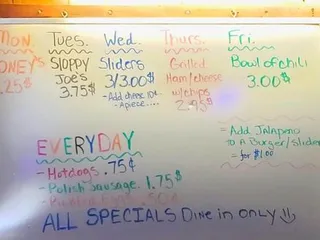 MON.
ONEY'S
.25$
Tues.
SLOPPY
Joe's
3.75$
Wed.
Sliders
3/3.00$
-Add cheese 10¢
Apiece....
Thurs.
Grilled
Ham/cheese
w/chips
2.95$
Fri.
Bowl of chili
3.00$
= Add Jalapeno
to A Burger/Slider
= for $1.00
EVERYDAY
- Hotdogs .75¢
- Polish Sausage 1.75$
.50¢
ALL SPECIALS Dine in ONLY